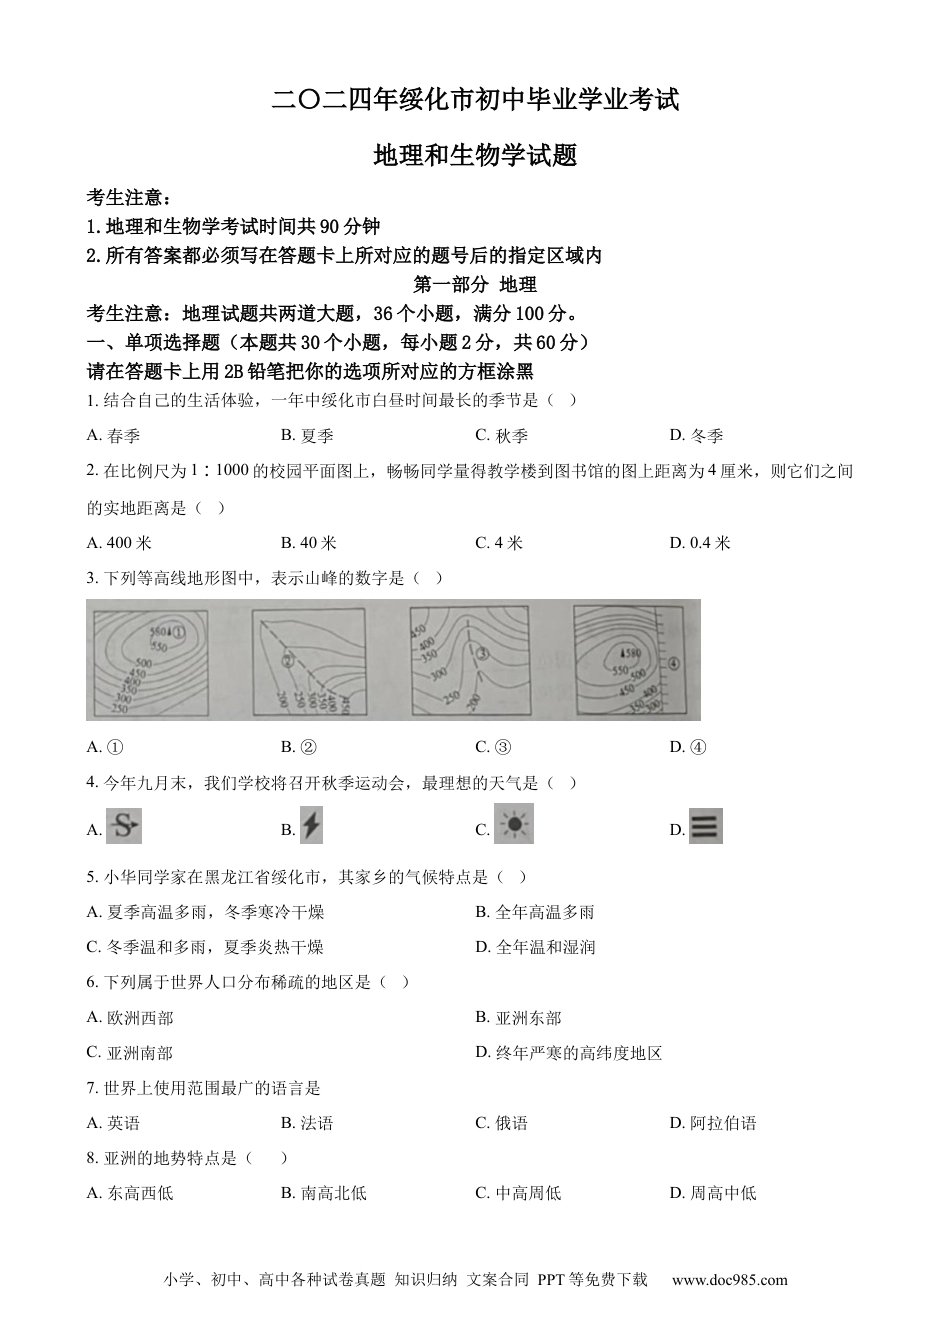 二〇二四年绥化市初中毕业学业考试
地理和生物学试题
考生注意：
1.地理和生物学考试时间共 90 分钟
2.所有答案都必须写在答题卡上所对应的题号后的指定区域内
第一部分 地理
考生注意：地理试题共两道大题，36 个小题，满分 100 分。
一、单项选择题（本题共 30 个小题，每小题 2 分，共 60 分）
请在答题卡上用 2B 铅笔把你的选项所对应的方框涂黑
1. 结合自己的生活体验，一年中绥化市白昼时间最长的季节是（ ）
A. 春季 B. 夏季 C. 秋季 D. 冬季
2. 在比例尺为 1∶1000 的校园平面图上，畅畅同学量得教学楼到图书馆的图上距离为 4 厘米，则它们之间
的实地距离是（ ）
A. 400 米 B. 40 米 C. 4 米 D. 0.4 米
3. 下列等高线地形图中，表示山峰的数字是（ ）
560 ① 550 500 450 400 350 300 250
② 200 250 300 350 400 450
450 400 350 300 250 200 ③
580 550 500 450 400 350 300 ④
A. ① B. ② C. ③ D. ④
4. 今年九月末，我们学校将召开秋季运动会，最理想的天气是（ ）
A. B. C. D.
5. 小华同学家在黑龙江省绥化市，其家乡的气候特点是（ ）
A. 夏季高温多雨，冬季寒冷干燥 B. 全年高温多雨
C. 冬季温和多雨，夏季炎热干燥 D. 全年温和湿润
6. 下列属于世界人口分布稀疏的地区是（ ）
A. 欧洲西部 B. 亚洲东部
C. 亚洲南部 D. 终年严寒的高纬度地区
7. 世界上使用范围最广的语言是
A. 英语 B. 法语 C. 俄语 D. 阿拉伯语
8. 亚洲的地势特点是（ ）
A. 东高西低 B. 南高北低 C. 中高周低 D. 周高中低
小学、初中、高中各种试卷真题 知识归纳 文案合同 PPT 等免费下载 www.doc985.com